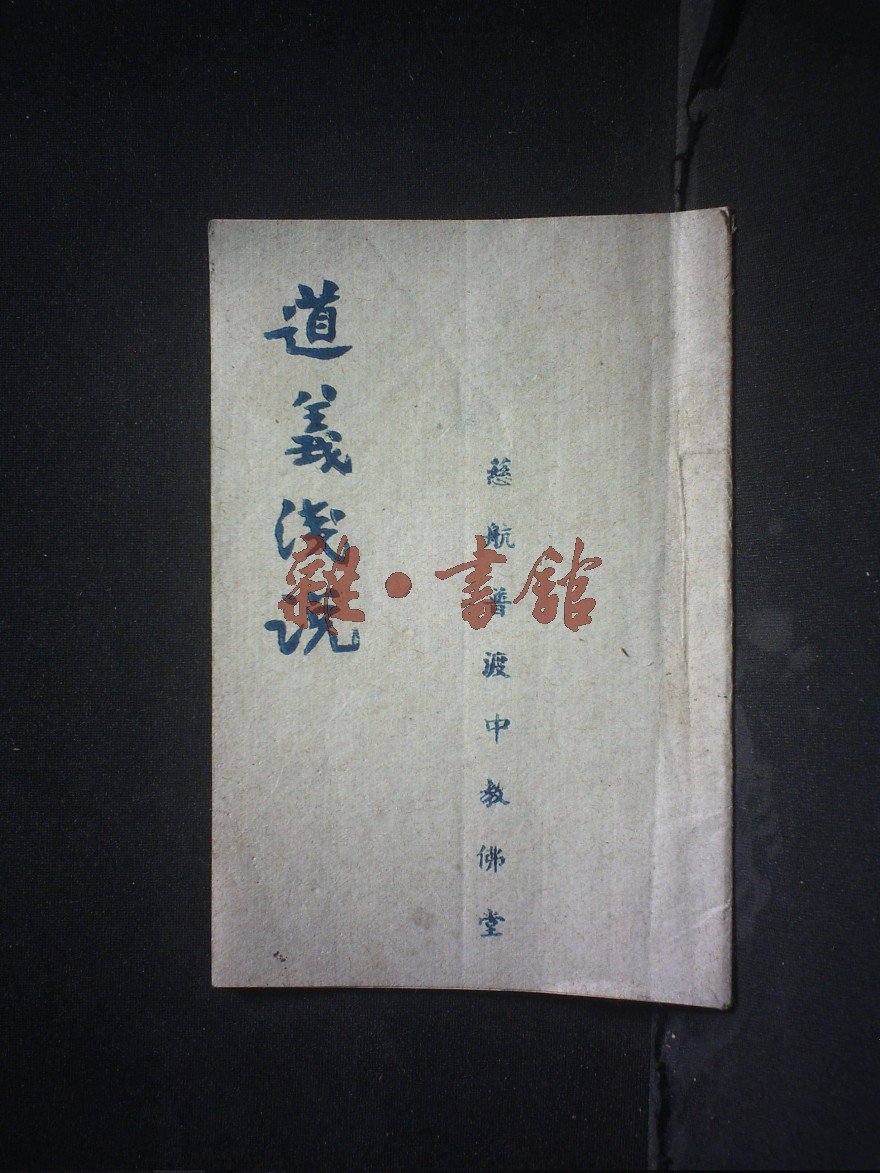 慈航普渡中教佛堂
道義淺説
雜·書館